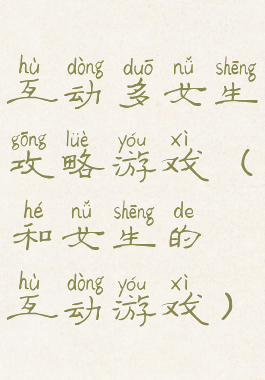 hù dòng duō nǚ shēng
互动多女生
gōng lüè yóu xì
攻略游戏（
hé nǚ shēng de
和女生的
hù dòng yóu xì
互动游戏）